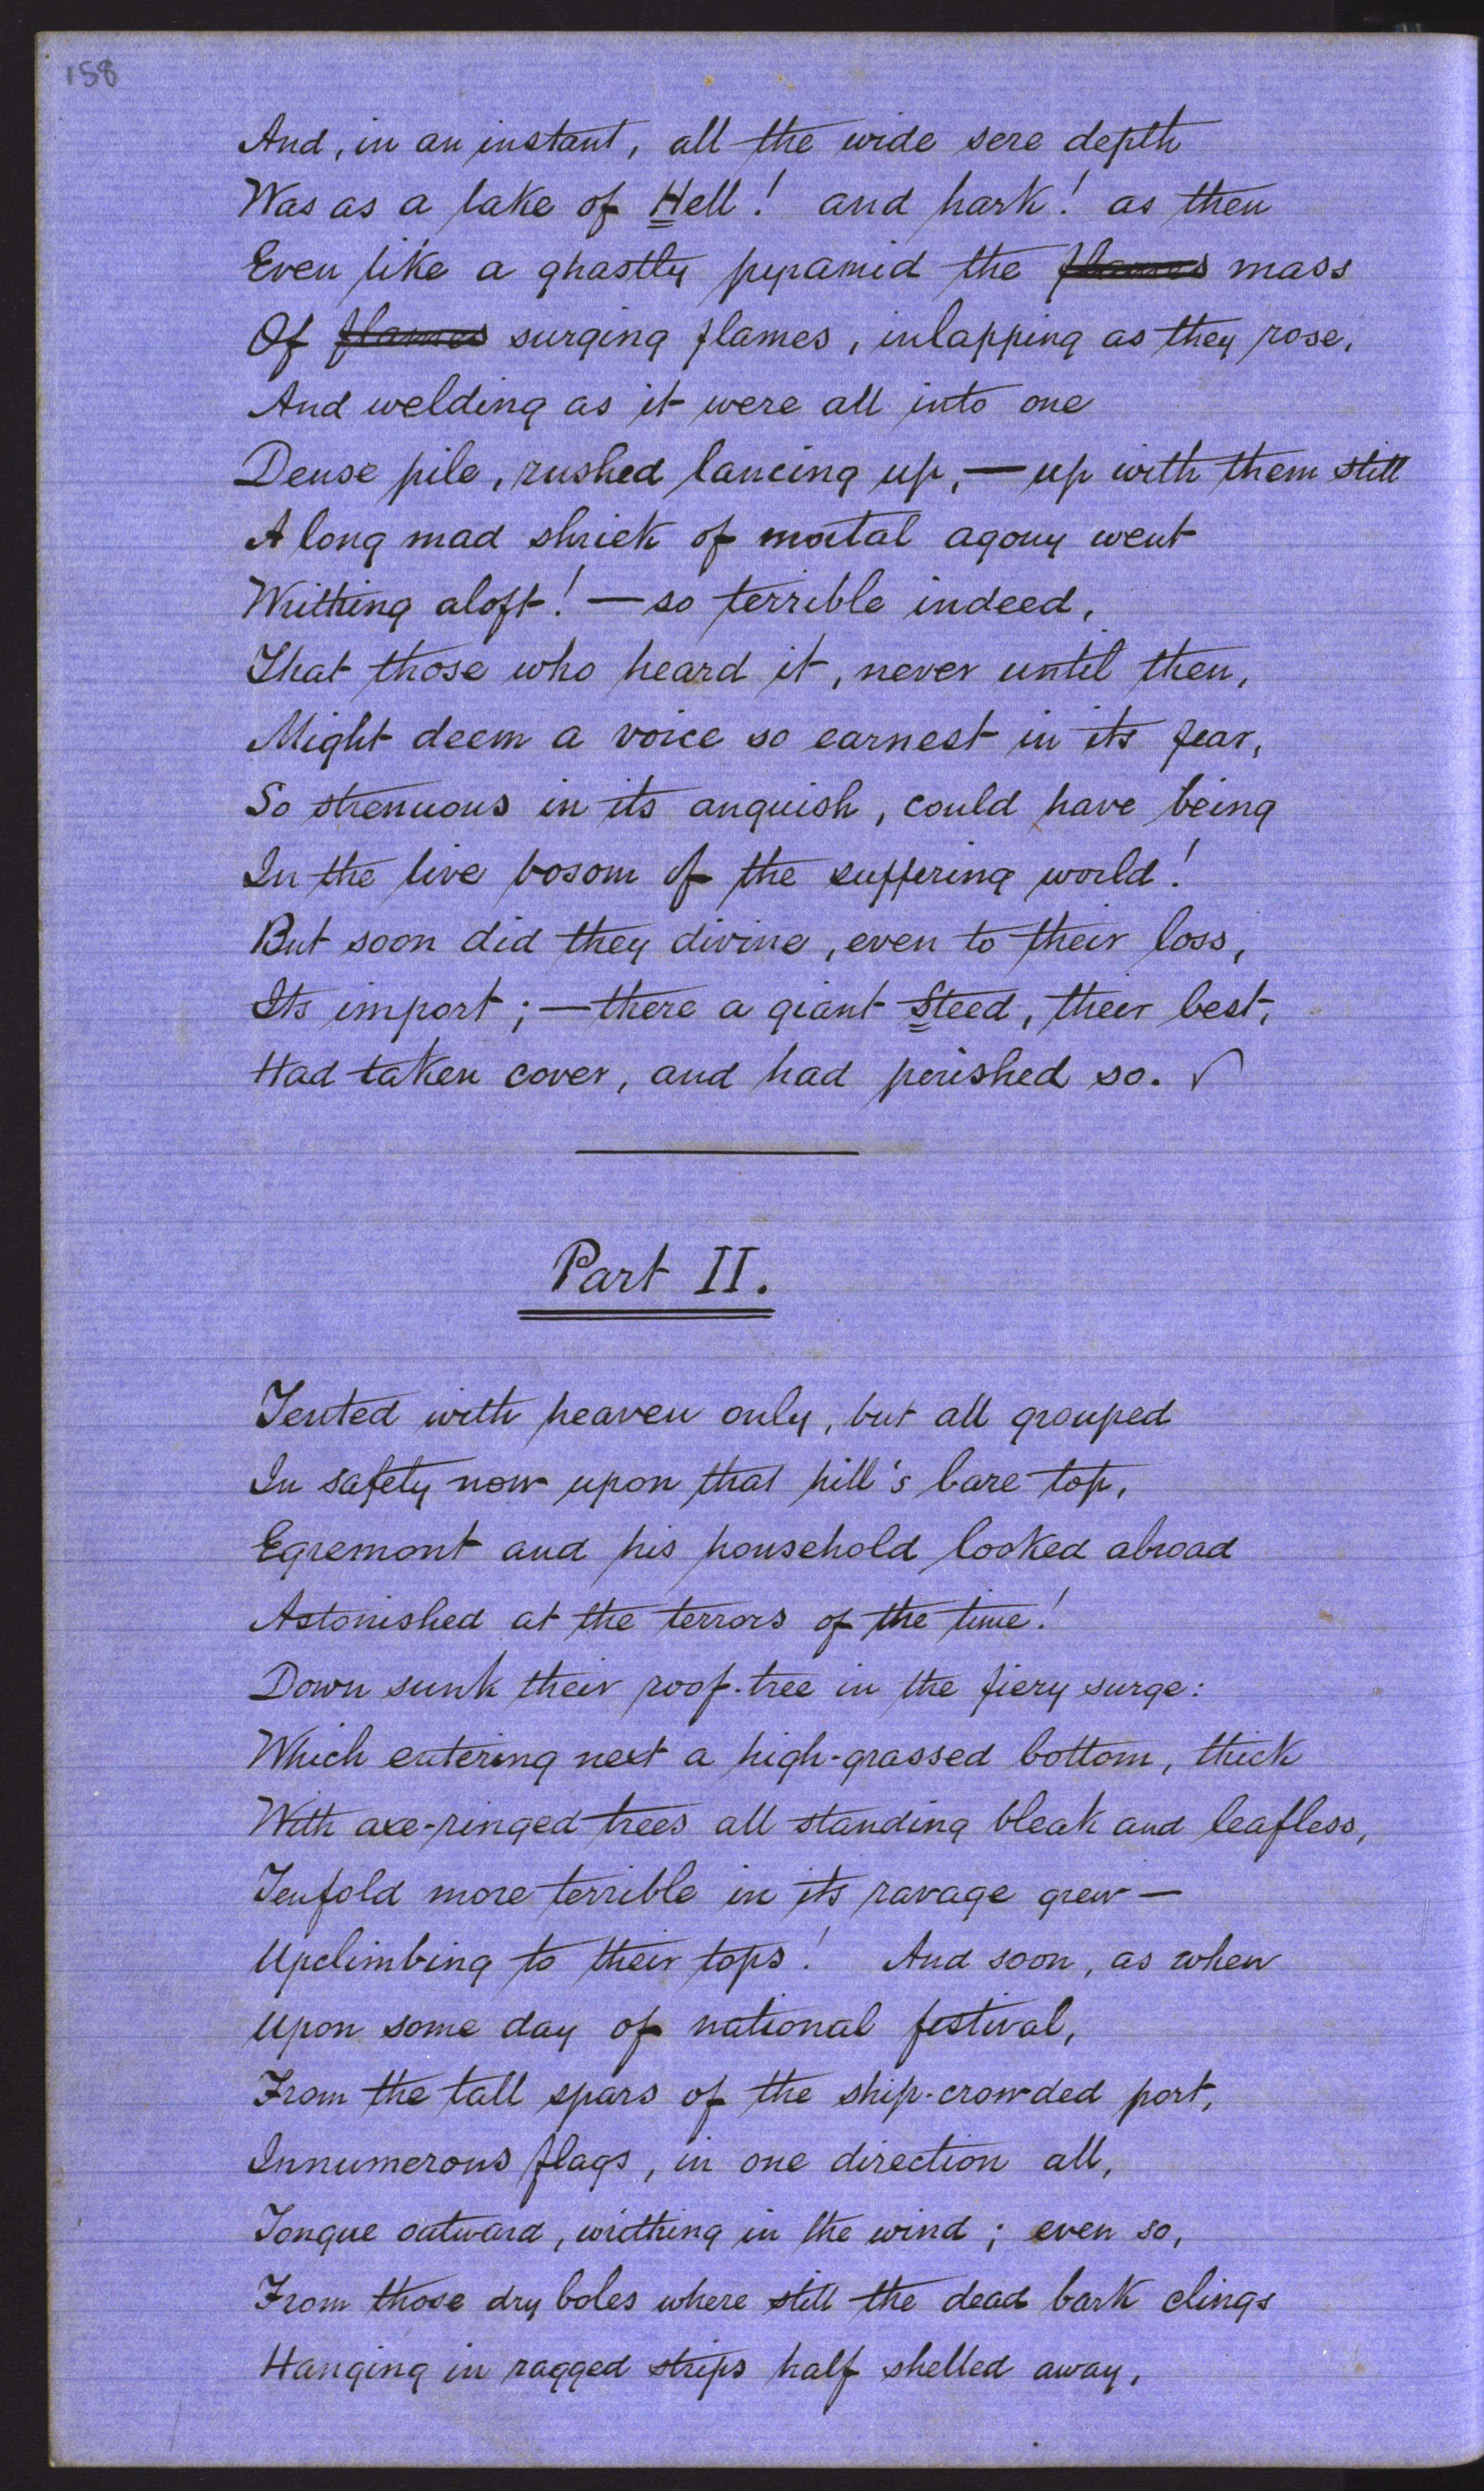 158
And, in an instant, all the wide sere depth
Was as a lake of Hell! and hark! as then
Even like a ghastly pyramid the flames mass
Of flames surging flames, inlapping as they rose,
And welding as it were all into one
Dense pile, rushed lancing up, — up with them still
A long mad shriek of mortal agony went
Writhing aloft! — so terrible indeed,
That those who heard it, never until then,
Might deem a voice so earnest in its fear,
So strenuous in its anguish, could have being
In the live bosom of the suffering world!
But soon did they divine, even to their loss,
Its import; — there a giant Steed, their best,
Had taken cover, and had perished so. √
Part II.
Tented with heaven only, but all grouped
In safety now upon that hill's bare top,
Egremont and his household looked abroad
Astonished at the terrors of the time!
Down sunk their roof-tree in the fiery surge:
Which entering next a high-grassed bottom, thick
With axe-ringed trees all standing bleak and leafless,
Tenfold more terrible in its ravage grew —
Upclimbing to their tops! And soon, as when
Upon some day of national festival,
From the tall spars of the ship-crowded port,
Innumerous flags, in one direction all,
Tongue outward, writhing in the wind; even so,
From those dry boles where still the dead bark clings
Hanging in ragged strips half shelled away,